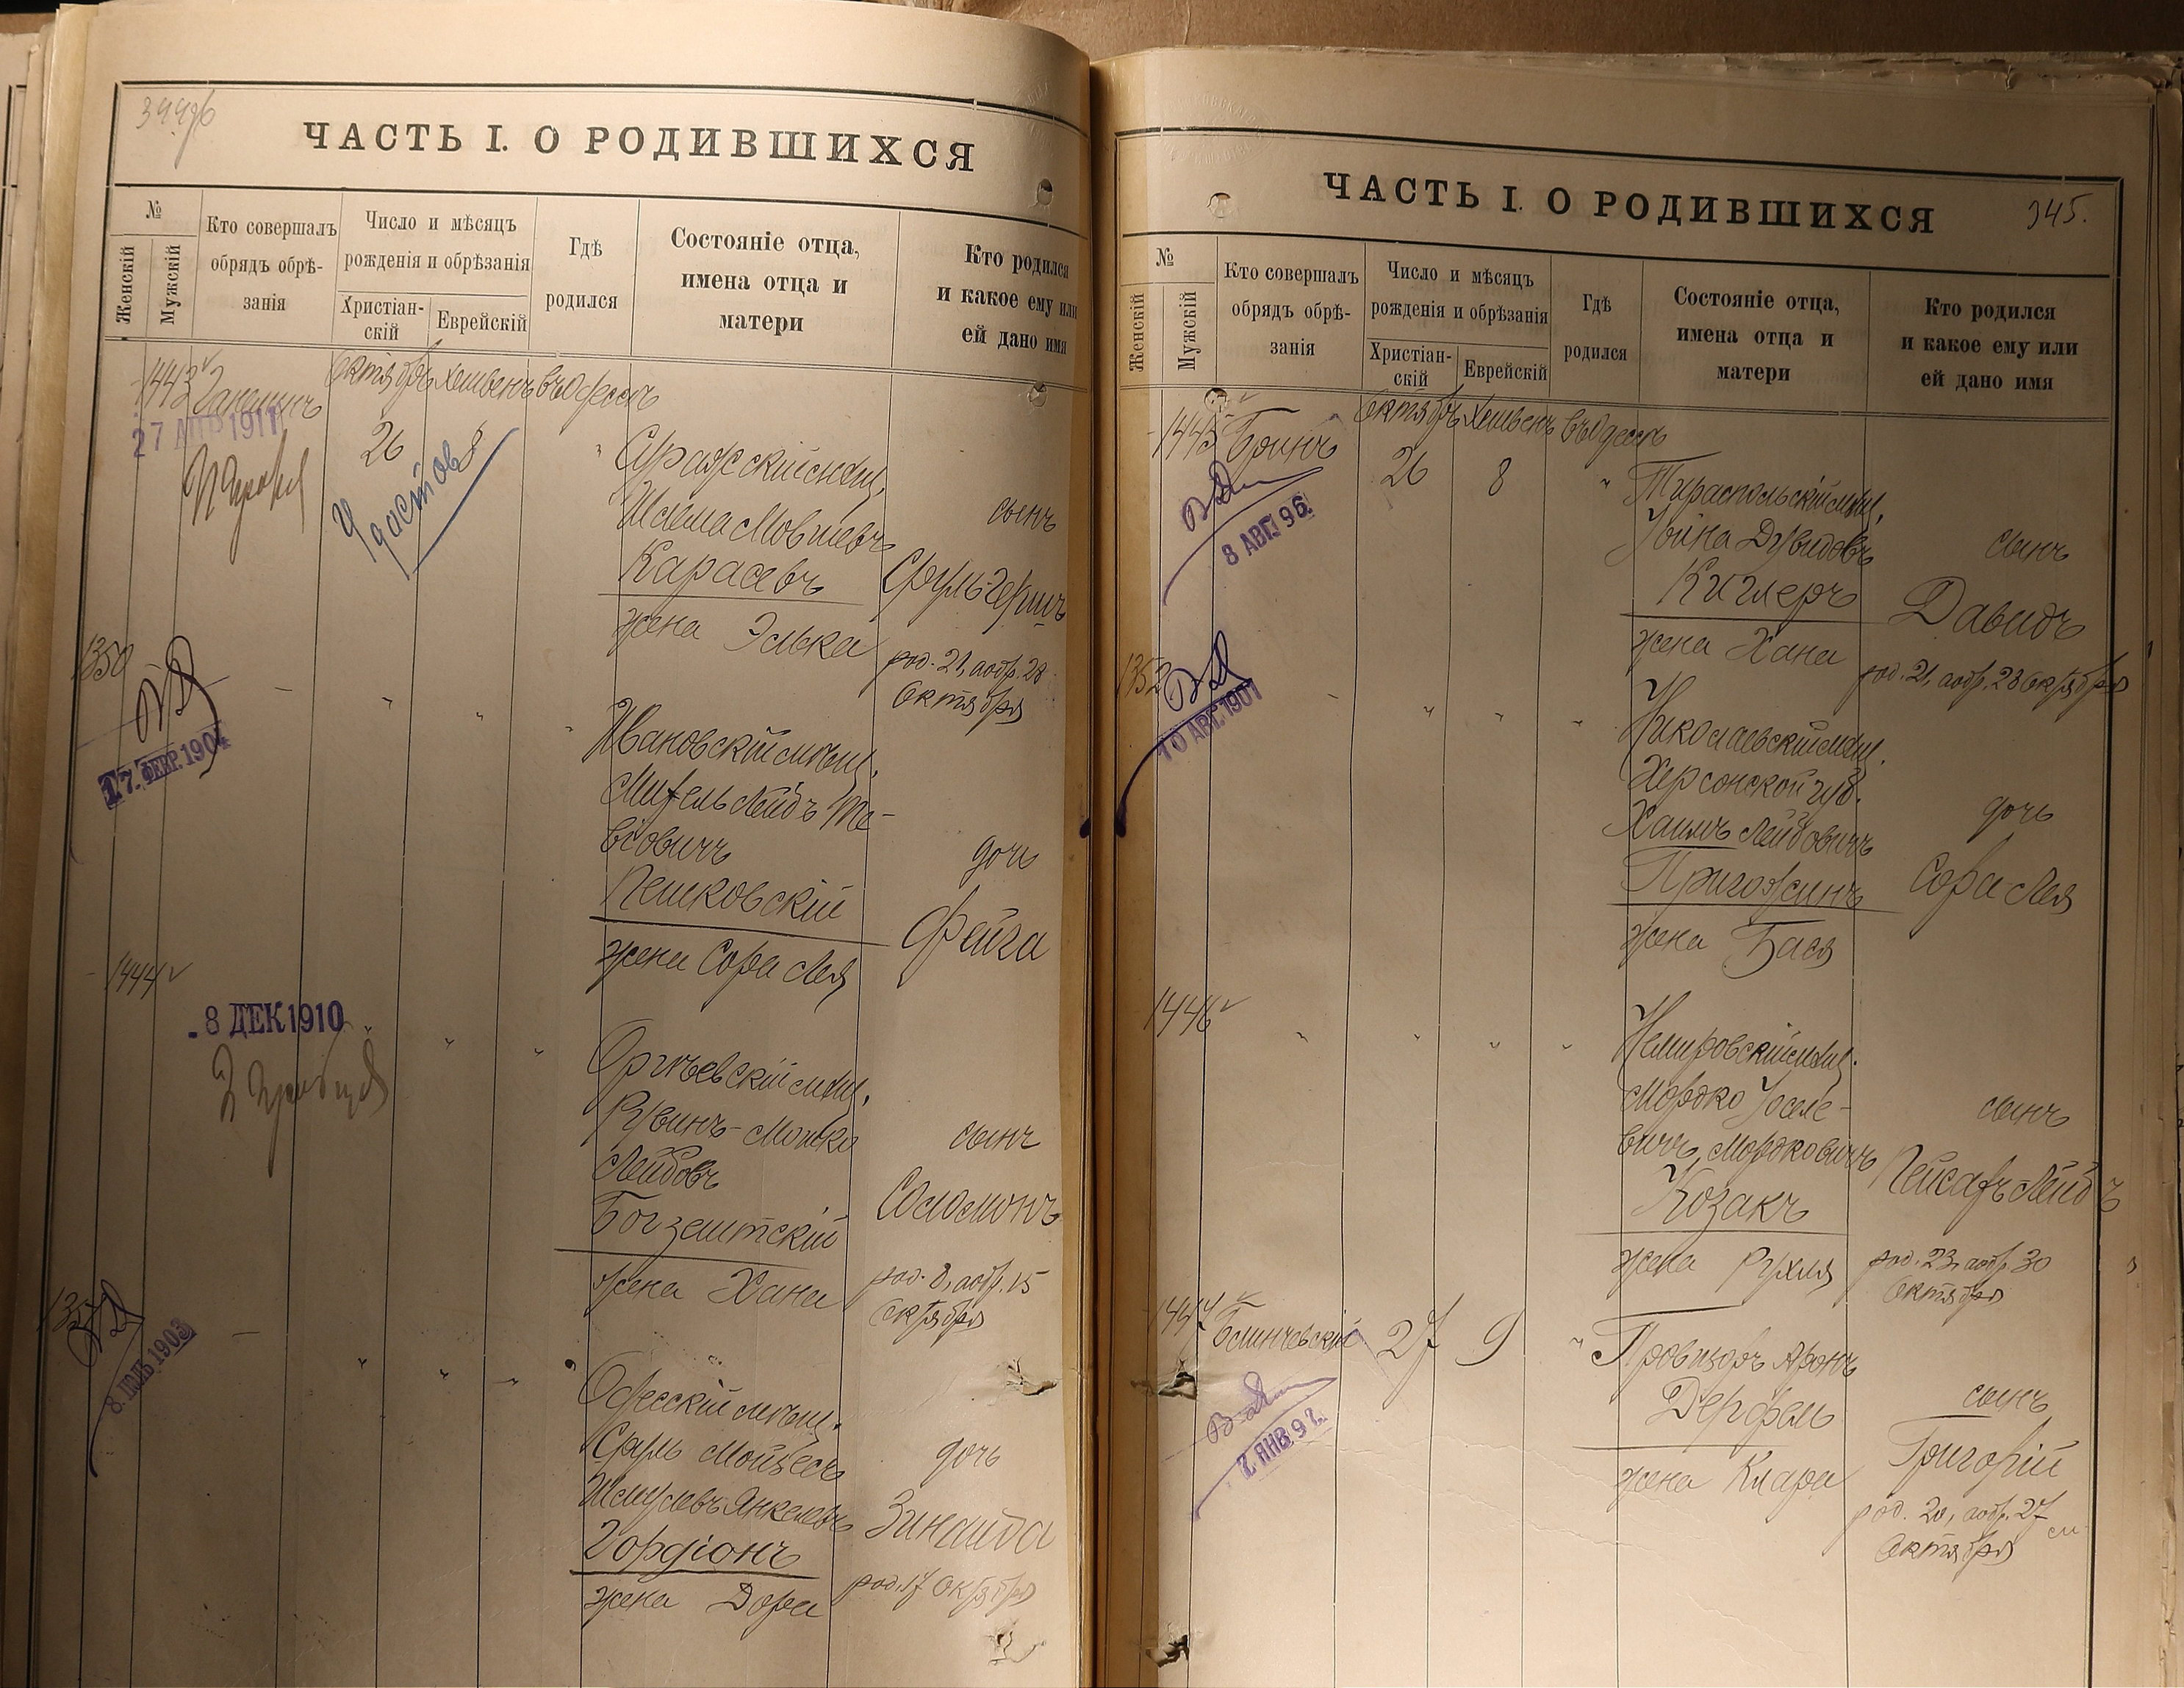 ЧАСТЬ I. О РОДИВШИХСЯ
№
Женскій
Мужскій
Кто совершалъ
обрядъ обрѣ-
занія
Число и мѣсяцъ
рожденія и обрѣзанія
Христіан-
скій
Еврейскій
Гдѣ
родился
Состояніе отца,
имена отца и
матери
Кто родился
и какое ему или
ей дано имя
1443
Октябрь Хешвенъ въ Одессѣ
27 АПР 1911
26
8
Удостов
Мовшевъ
сынъ
Карасевъ
Сруль-Гершъ
жена Элька
род. 21, а обр. 28
Октября
1350
17 ФЕВР. 1904
Ивановскій мѣщ.
Лейбъ Те-
віовичъ
дочь
Пешковскій
Фейга
жена Сора Лея
1444
8 ДЕК 1910
Оргѣевскій мѣщ.
Рувинъ-Мошко
сынъ
Лейбовъ
Соломонъ
Богзештскій
род. 8, а обр. 15
жена Хана
Октября
8. ІЮЛЬ 1903
Одесскій мѣщ.
Сруль Мойсесъ
дочь
Шмулевъ Янкелевъ
Зинаида
Гордіонъ
род. 17 Октября
жена Дора
ЧАСТЬ I. О РОДИВШИХСЯ
345.
№
Женскій
Мужскій
Кто совершалъ
обрядъ обрѣ-
занія
Число и мѣсяцъ
рожденія и обрѣзанія
Христіан-
скій
Еврейскій
Гдѣ
родился
Состояніе отца,
имена отца и
матери
Кто родился
и какое ему или
ей дано имя
1445 Бринъ
Октябрь Хешвенъ въ Одессѣ
26
8
8 АВГ. 96.
Тираспольскій мѣщ.
Іойна Дувидовъ
сынъ
Киглеръ
Давидъ
жена Хана
род. 21, а обр. 28 Октября
1352
10 АВГ. 1901
Николаевскій мѣщ.
Херсонской губ.
дочь
Хаимъ Лейбовичъ
Пригожинъ
Сора Лея
жена Бася
1446
Немировскій мѣщ.
Мордко Іоселе-
сынъ
вичъ Мордковичъ
Пейсахъ Лейбъ
Козакъ
жена Рухля
род. 23, а обр. 30
Октября
1447
27
9
Провизоръ Аронъ
сынъ
Дерфель
Григорій
жена Клара
род. 20, а обр. 27
Октября